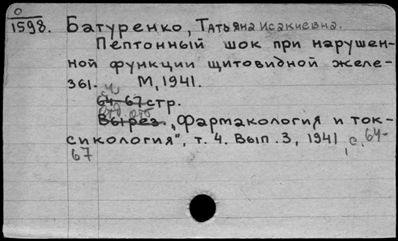 0
1598. Батуренко, Татьяна Исакиевна.
Пептонный шок при нарушен-
ной функции щитовидной желе-
зы. М, 1941.
64-67 стр.
Вырез. „Фармакология и ток-
сикология", т. 4. Вып. 3, 1941, с. 64-
67